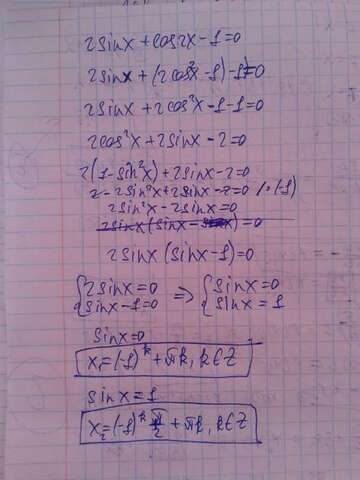 2sinx + cos2x - 1 = 0
2sinx + (2cos²x - 1) - 1 = 0
2sinx + 2cos²x - 1 - 1 = 0
2cos²x + 2sinx - 2 = 0
2(1 - sin²x) + 2sinx - 2 = 0
2 - 2sin²x + 2sinx - 2 = 0 /·(-1)
2sin²x - 2sinx = 0
2sinx (sinx - = 0
2sinx (sinx - 1) = 0
{2sinx = 0 => {sinx = 0
{sinx - 1 = 0 {sinx = 1
sinx = 0
x₁ = (-1)ᵏ + πk, k∈Z
sinx = 1
x₂ = (-1)ᵏ π/2 + πk, k∈Z